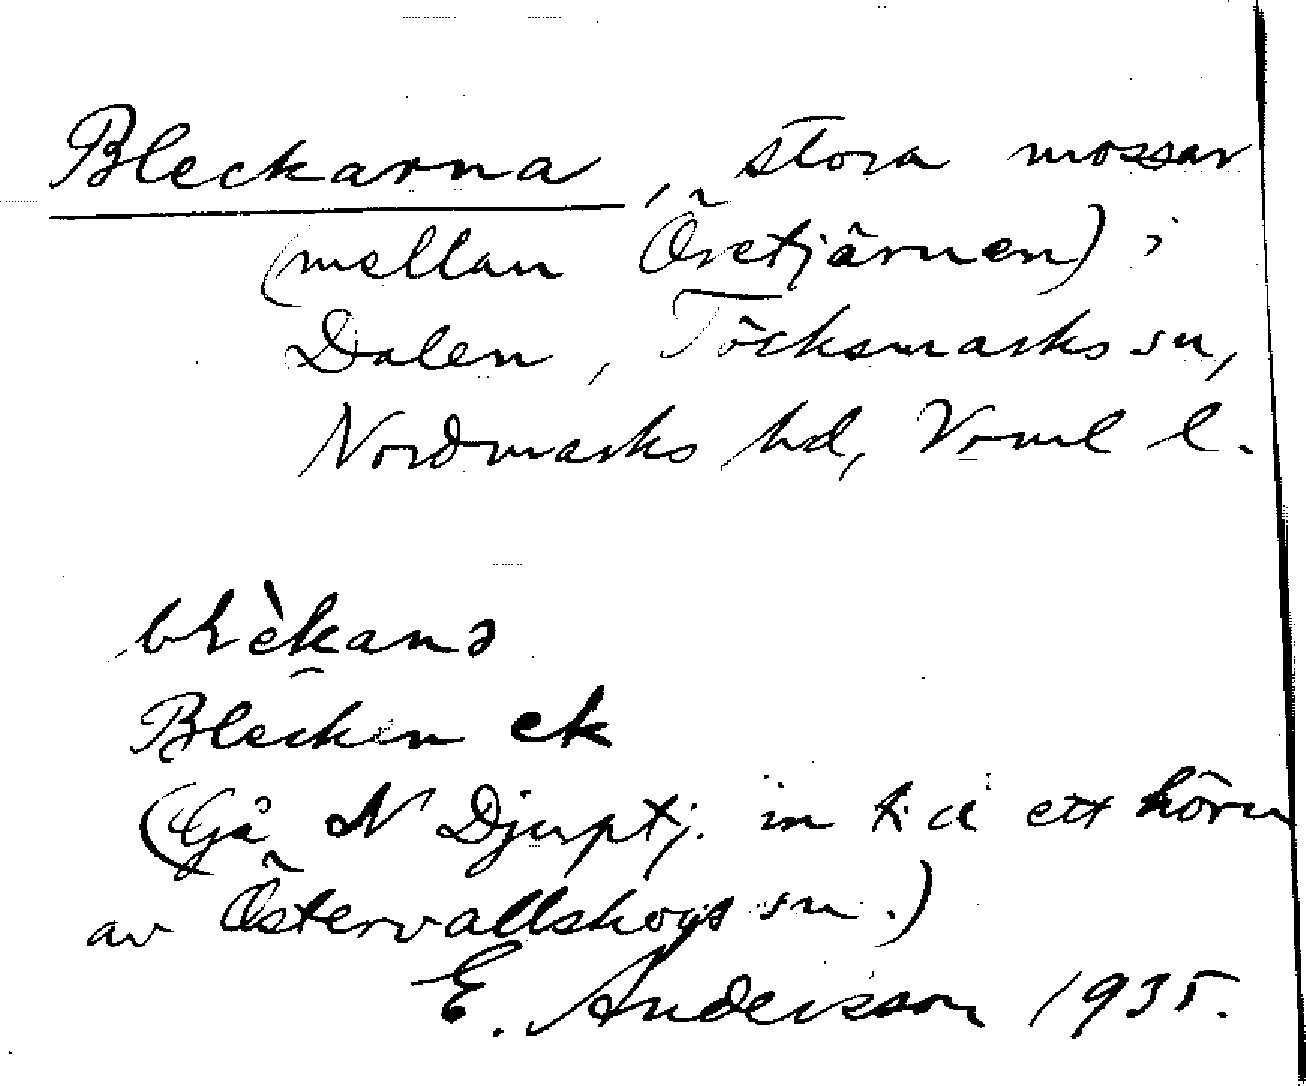 Bleckarna, stora mossar
(mellan Öretjärnen) i
Dalen, Töcksmarks sn,
Nordmarks hd, Vrml l.
blèkanə
Blecken ek
(Gå N Djuptj. in ett hörn
av Östervallskogs sn.)
E. Andersson 1935.